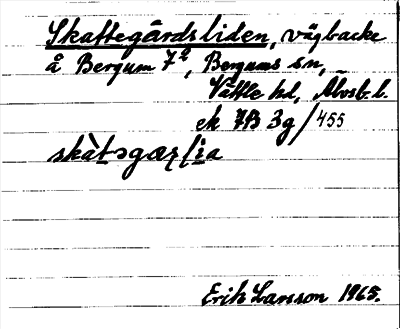 Skattegårdsliden, vägbacke
å Bergum 7², Bergums sn,
Vättle hd, Älvsb. l.
ek 7B 3g/455
skàtsgæɽɩa
Erik Larsson 1965.